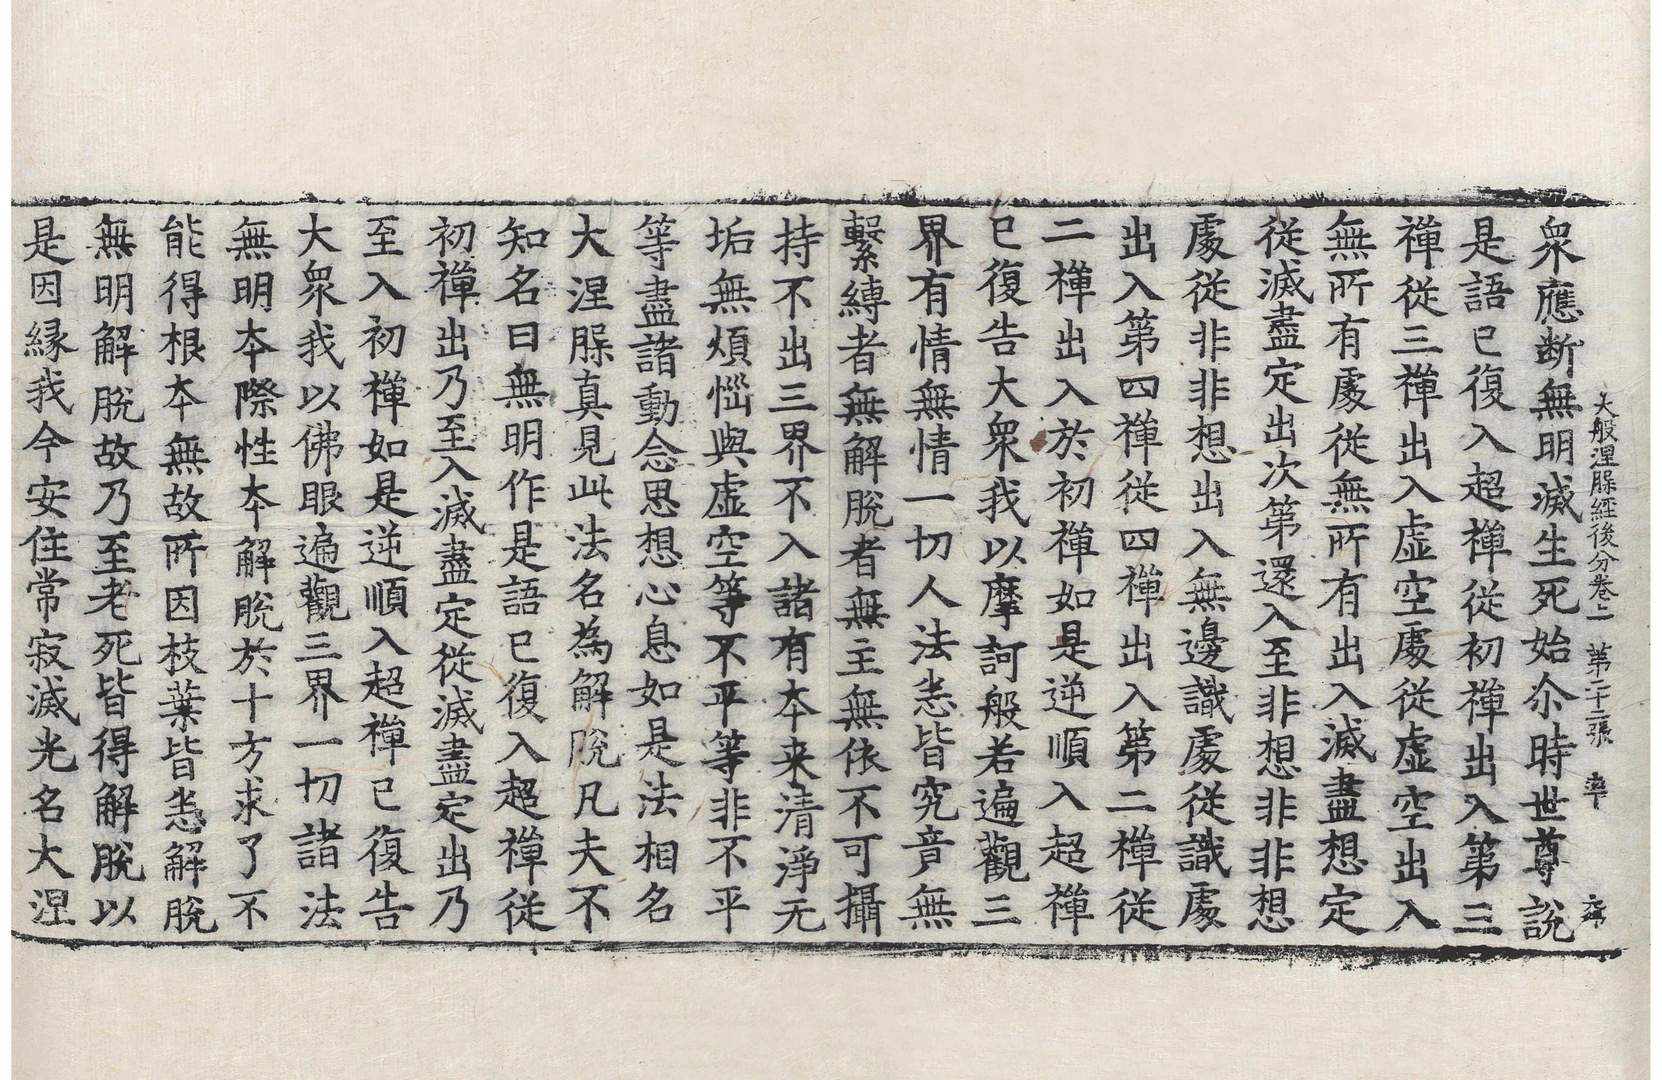 大般涅䏶經後分卷上　第二十二張　率
衆應断無明滅生死始尒時世尊說
是語已復入超禪從初禪出入第三
禪從三禪出入虛空處從虛空出入
無所有處從無所有出入滅盡想定
從滅盡定出次第還入至非想非非想
處從非非想出入無邊識處從識處
出入第四禪從四禪出入第二禪從
二禪出入於初禪如是逆順入超禪
已復告大衆我以摩訶般若遍觀三
界有情無情一切人法悉皆究竟無
繫縛者無解脫者無主無依不可攝
持不出三界不入諸有本来清淨无
垢無煩惱與虛空等不平等非不平
等盡諸動念思想心息如是法相名
大涅䏶真見此法名為解脫凡夫不
知名曰無明作是語已復入超禪從
初禪出乃至入滅盡定從滅盡定出乃
至入初禪如是逆順入超禪已復告
大衆我以佛眼遍觀三界一切諸法
無明本際性本解脫於十方求了不
能得根本無故所因枝葉皆悉解脫
無明解脫故乃至老死皆得解脫以
是因縁我今安住常寂滅光名大涅